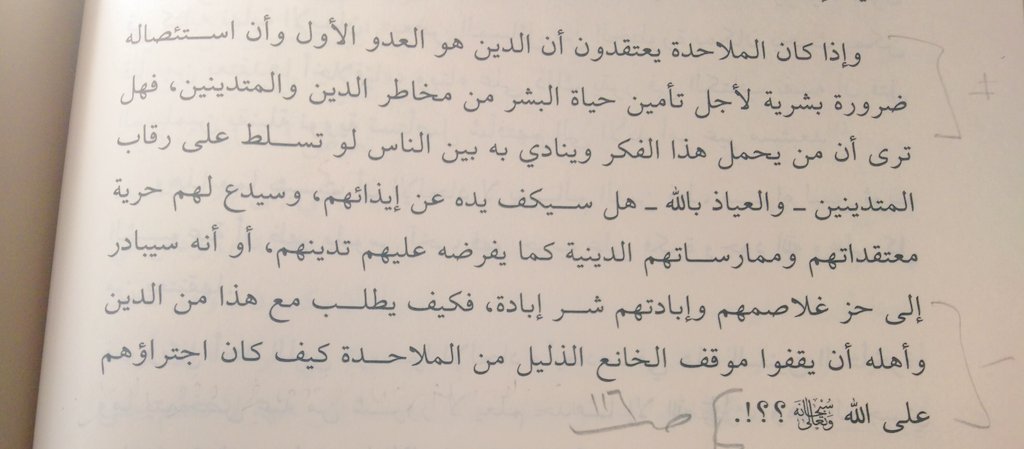 وإذا كان الملاحدة يعتقدون أن الدين هو العدو الأول وأن استئصاله
ضرورة بشرية لأجل تأمين حياة البشر من مخاطر الدين والمتدينين، فهل
ترى أن من يحمل هذا الفكر وينادي به بين الناس لو تسلط على رقاب
المتدينين ـ والعياذ بالله ـ هل سيكف يده عن إيذائهم، وسيدع لهم حرية
معتقداتهم وممارساتهم الدينية كما يفرضه عليهم تدينهم، أو أنه سيبادر
إلى حز غلاصمهم وإبادتهم شر إبادة، فكيف يطلب مع هذا من الدين
وأهله أن يقفوا موقف الخانع الذليل من الملاحدة كيف كان اجتراؤهم
على الله سُبْحَانَهُ وَتَعَالَى ؟؟!.